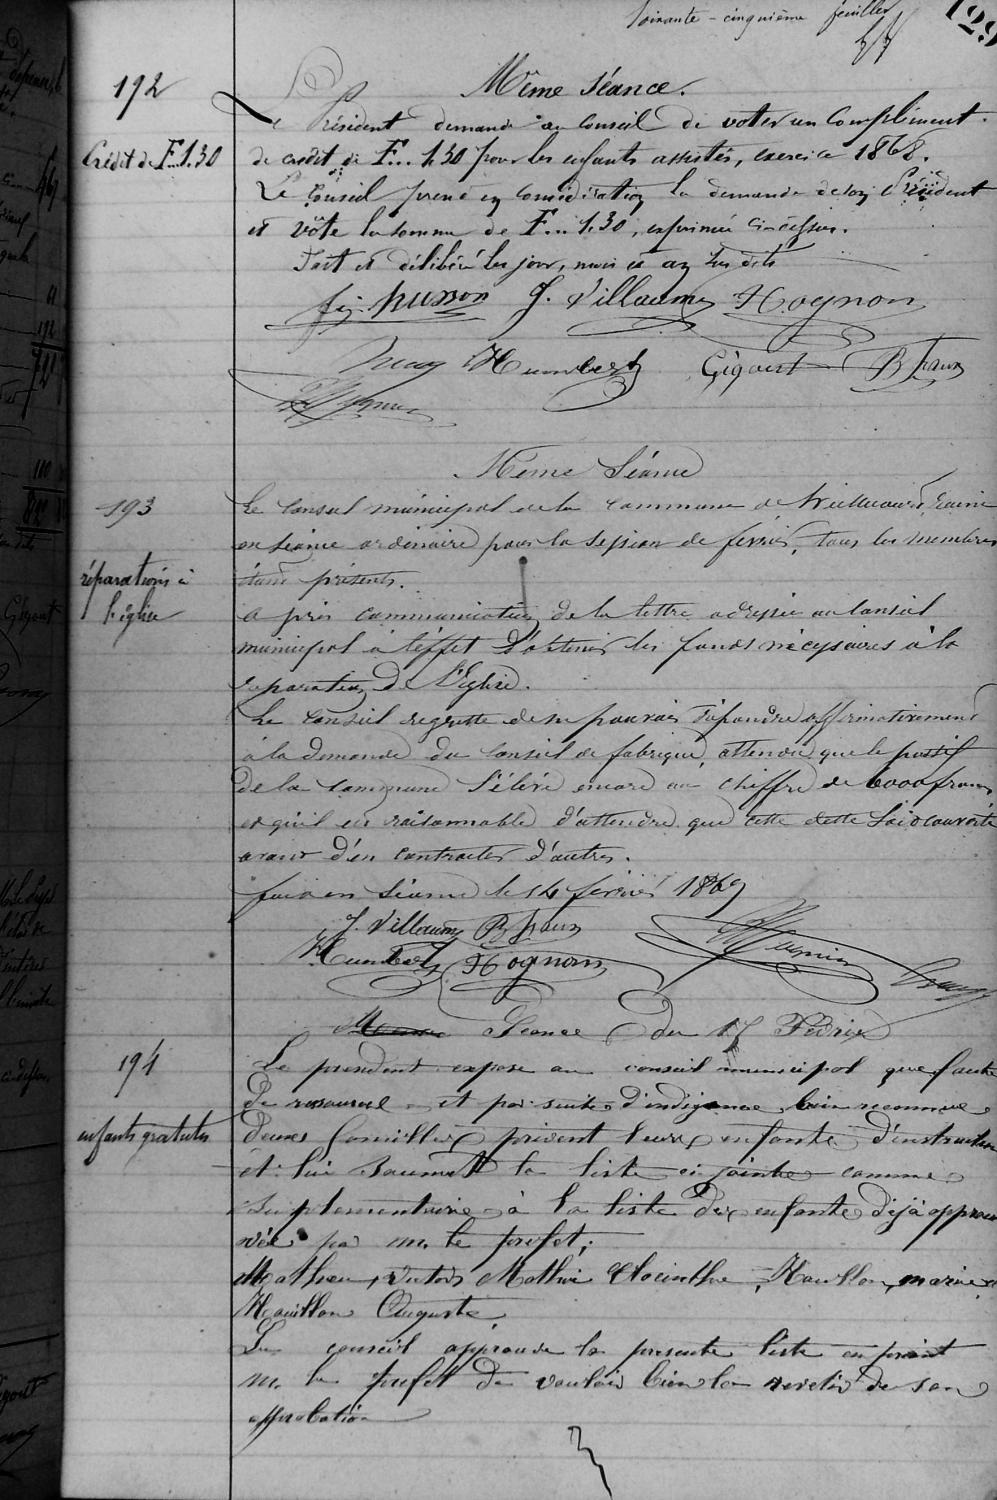 Soixante-cinquième feuillet
129
192
Même Séance.
Crédit de F. 1.30
Le Président demande au Conseil de voter un Complément
de crédit de F... 1.30 pour les enfants assistés, exercice 1868.
Le Conseil prend en considération la demande de son Président
et vôte la somme de F... 1.30, exprimée ci-dessus.
Fait et délibéré les jour, mois et an susdits
fs. husson J. Villaume Hognon
Humbert Gigout B haus
Même Séance
193
réparations à
l'église
Le Conseil municipal de la commune de réuni
en séance ordinaire pour la session de février, tous les membres
étant présents.
après communication de la lettre adressée au Conseil
municipal à l'éffet d'obtenir les fonds nécessaires à la
réparation de l'Eglise.
Le Conseil regrette de ne pouvoir répondre affirmativement
à la demande du Conseil de fabrique, attendu que le passif
de la commune s'élève encore au chiffre de 6000 francs
et qu'il est raisonnable d'attendre que cette dette soit couverte
avant d'en contracter d'autres.
fait en séance le 14 février 1869
J. Villaume B haus
Humbert Hognon
Séance du 15 Fevrier
194
enfants gratuits
Le president expose au conseil municipal que faute
de resource et par suite d'indigence bien reconnue
deux familles privent leurs enfants d'instruction
et lui soumet la liste ci jointe comme
suplementaire à la liste des enfants déjà approu
vée par m. le prefet;
Mathieu Mathieu Hyacinthe, Houillon, marie et
Houillon Auguste
Le conseil approuve la presente liste en priant
m. le prefet de vouloir bien la revetir de son
approbation